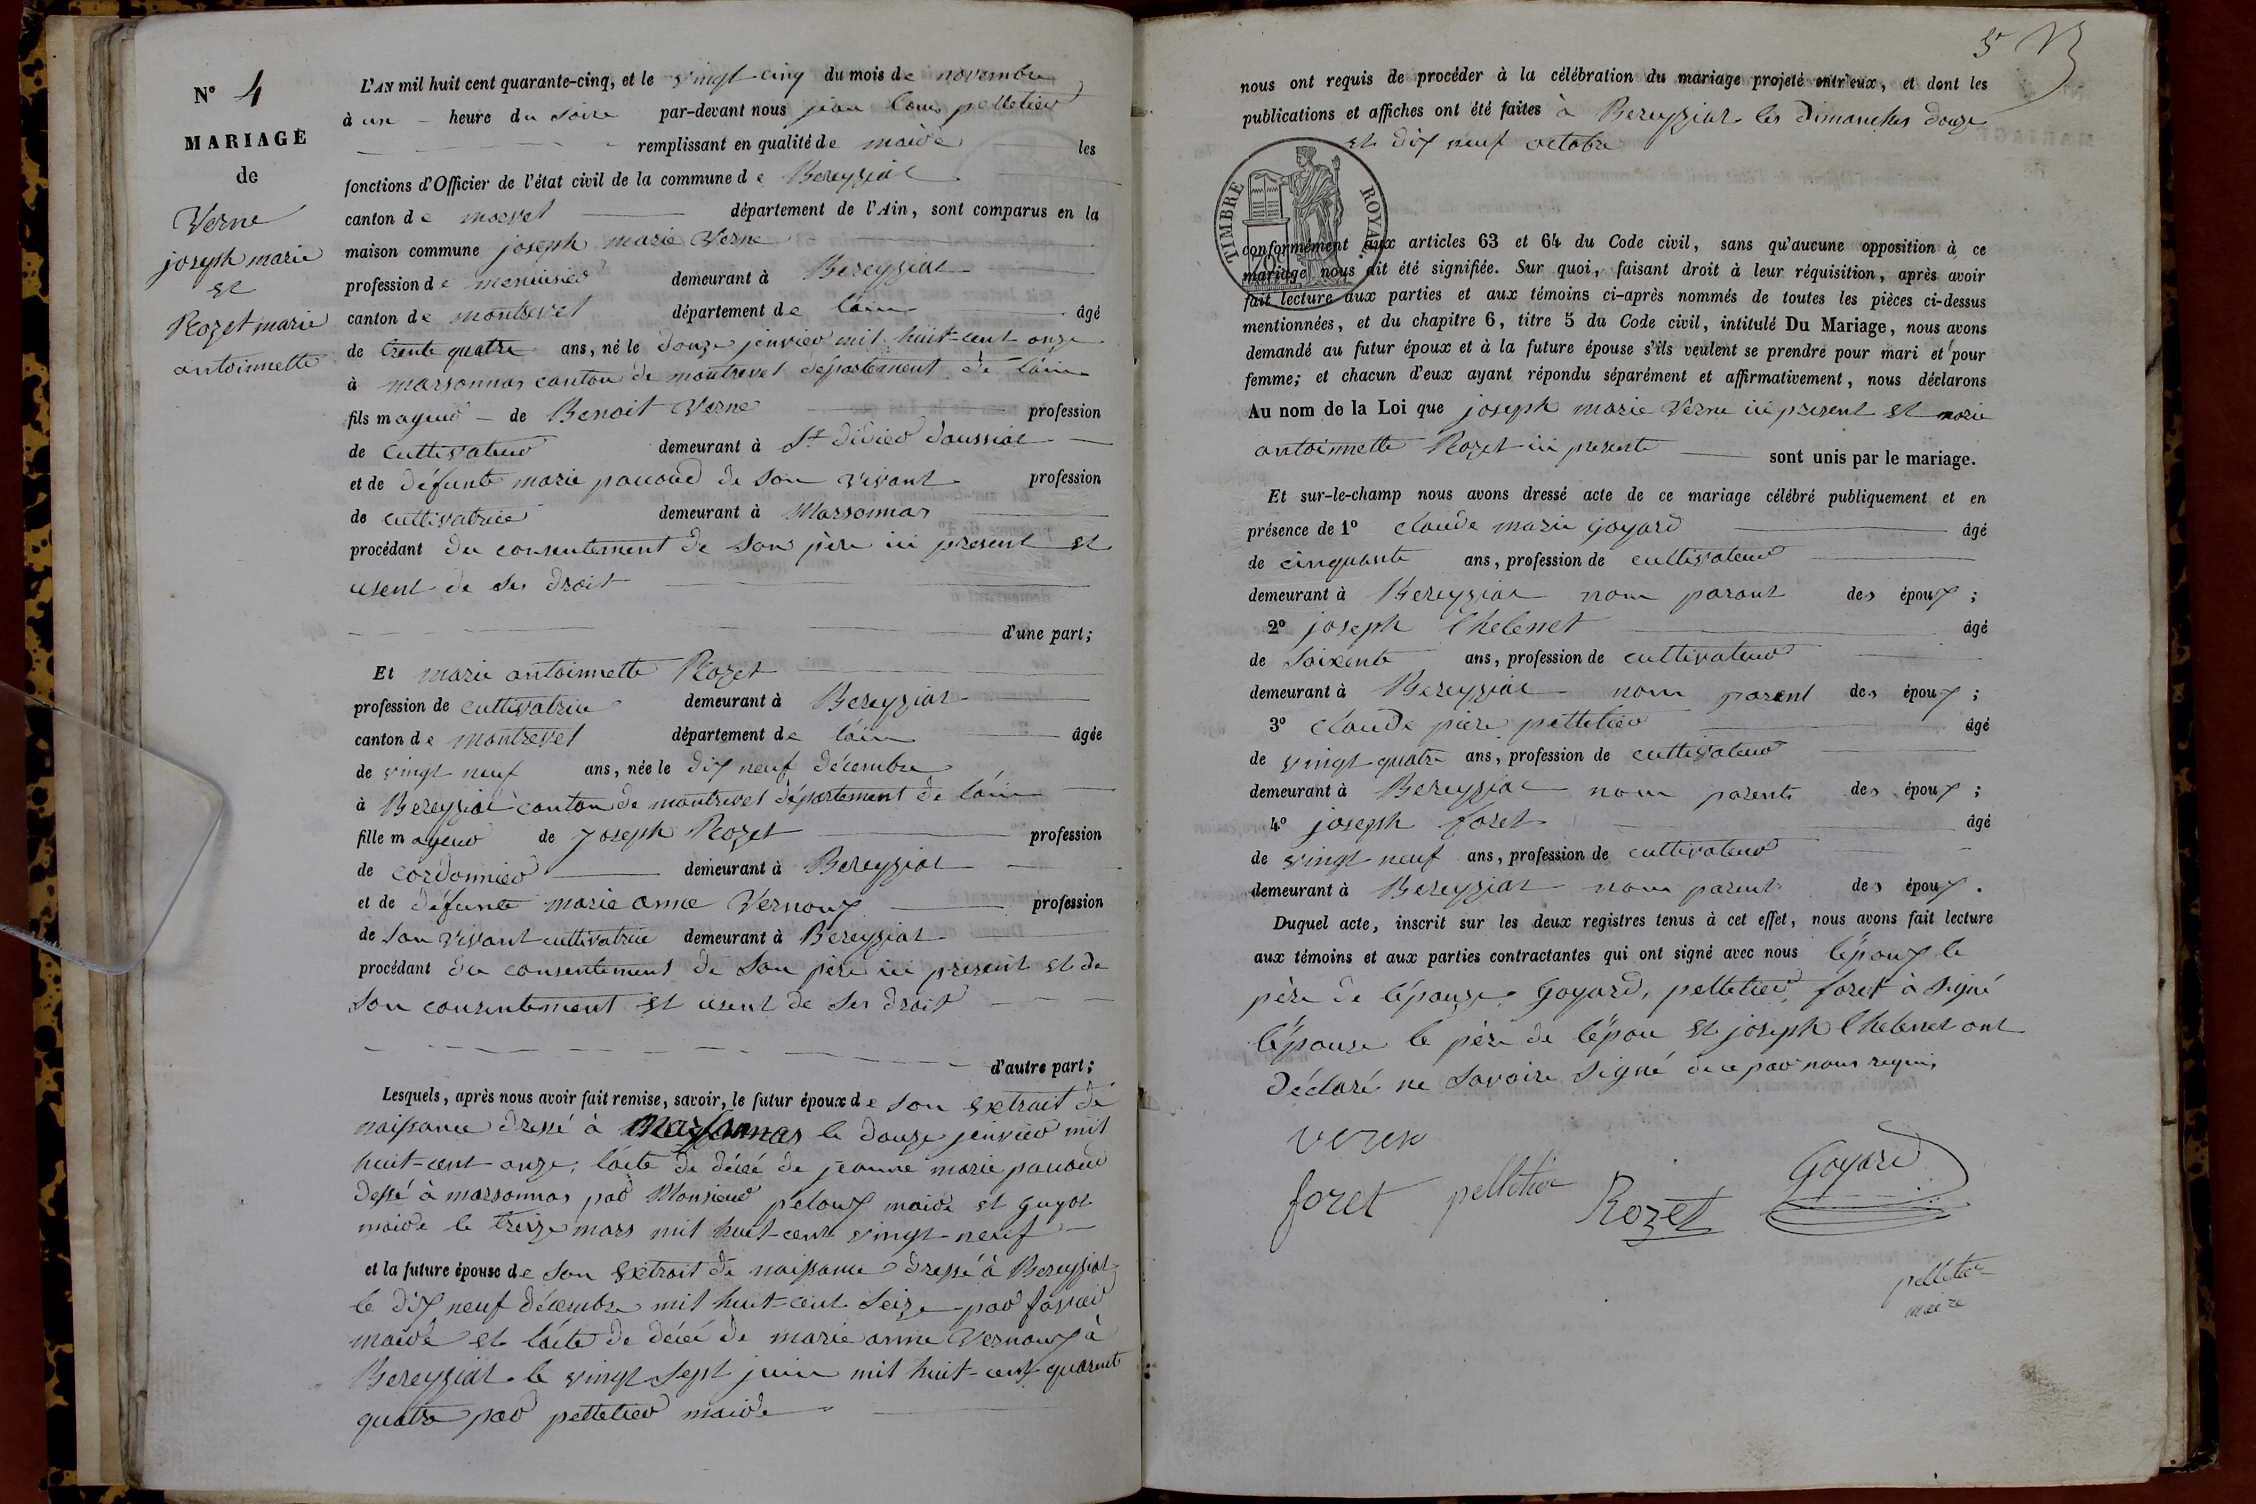 N° 4
MARIAGE
de
Verne
joseph marie
et
Rozet marie
antoinnette
L'AN mil huit cent quarante-cinq, et le vingt cinq du mois de novembre
à un heure du soire par-devant nous jean Louis pelletier
remplissant en qualité de maire les
fonctions d'Officier de l'état civil de la commune de Bereyziat
canton de département de l'Ain, sont comparus en la
maison commune joseph marie Verne
profession de menuisier demeurant à Bereyziat
canton de montrevel département de láin âgé
de trente quatre ans, né le douze jenvier mil huit-cent onze
à marsonnas canton de montrevel département de láin
fils mageur de Benoit Verne profession
de cultivateur demeurant à St didier daussiat
et de défunte marie pauoud de son vivant profession
de cultivatrice demeurant à Marsonnas
procédant du consentement de son père ici present et
usent de ses droit
d'une part;
Et marie antoinnette Rozet
profession de cultivatrice demeurant à Bereyziat
canton de montrevel département de láin âgée
de vingt neuf ans, née le dix neuf décembre
à Bereyziat canton de montrevel département de láin
fille mageur de Joseph Rozet profession
de cordonnier demeurant à Bereyziat
et de défunte marie anne Vernoux profession
de son vivant cultivatrice demeurant à Bereyziat
procédant du consentement de son père ici present et de
son consentement et usent de ses droit
d'autre part;
Lesquels, après nous avoir fait remise, savoir, le futur époux de son extrait de
naissance dressé à Marsonnas le douze jenvier mil
huit-cent onze, lácte de décé de jeanne marie pauoud
dessé à marsonnas par Monsieur peloux maire et guyot
maire le treize mars mil huit-cent vingt-neuf
et la future épouse de son extrait de naissance dressé à Bereyziat
le dix neuf décembre mil huit-cent seize par maire et lácte de décé de marie anne Vernoux à
Bereyziat le vingt sept juin mil huit-cent quarent
quatre par pelletier maire
5
nous ont requis de procéder à la célébration du mariage projeté entr'eux, et dont les
publications et affiches ont été faites à Bereyziat les dimanches douze
et dix neuf octobre
TIMBRE ROYAL.
conformément aux articles 63 et 64 du Code civil, sans qu'aucune opposition à ce
mariage nous ait été signifiée. Sur quoi, faisant droit à leur réquisition, après avoir
fait lecture aux parties et aux témoins ci-après nommés de toutes les pièces ci-dessus
mentionnées, et du chapitre 6, titre 5 du Code civil, intitulé Du Mariage, nous avons
demandé au futur époux et à la future épouse s'ils veulent se prendre pour mari et pour
femme; et chacun d'eux ayant répondu séparément et affirmativement, nous déclarons
Au nom de la Loi que joseph marie Verne ici present et marie
antoinnette Rozet ici presente sont unis par le mariage.
Et sur-le-champ nous avons dressé acte de ce mariage célébré publiquement et en
présence de 1° claude marie goyard âgé
de cinquante ans, profession de cultivateur
demeurant à Bereyziat nom parant des époux ;
2° joseph Chelenet âgé
de soixente ans, profession de cultivateur
demeurant à Bereyziat nom parent des époux ;
3° claude piere pelletier âgé
de vingt quatre ans, profession de cultivateur
demeurant à Bereyziat nom parent des époux ;
4° joseph foret âgé
de vingt neuf ans, profession de cultivateur
demeurant à Bereyziat nom parent des époux .
Duquel acte, inscrit sur les deux registres tenus à cet effet, nous avons fait lecture
aux témoins et aux parties contractantes qui ont signé avec nous lépoux le
père de lépouze, Goyard, pelletier, foret à signé
lépouse le père de lépou et joseph Chelenet ont
déclaré ne savoire signé de ce par nous requis
verne
foret pelletier Rozet Goyard
pelletier
maire